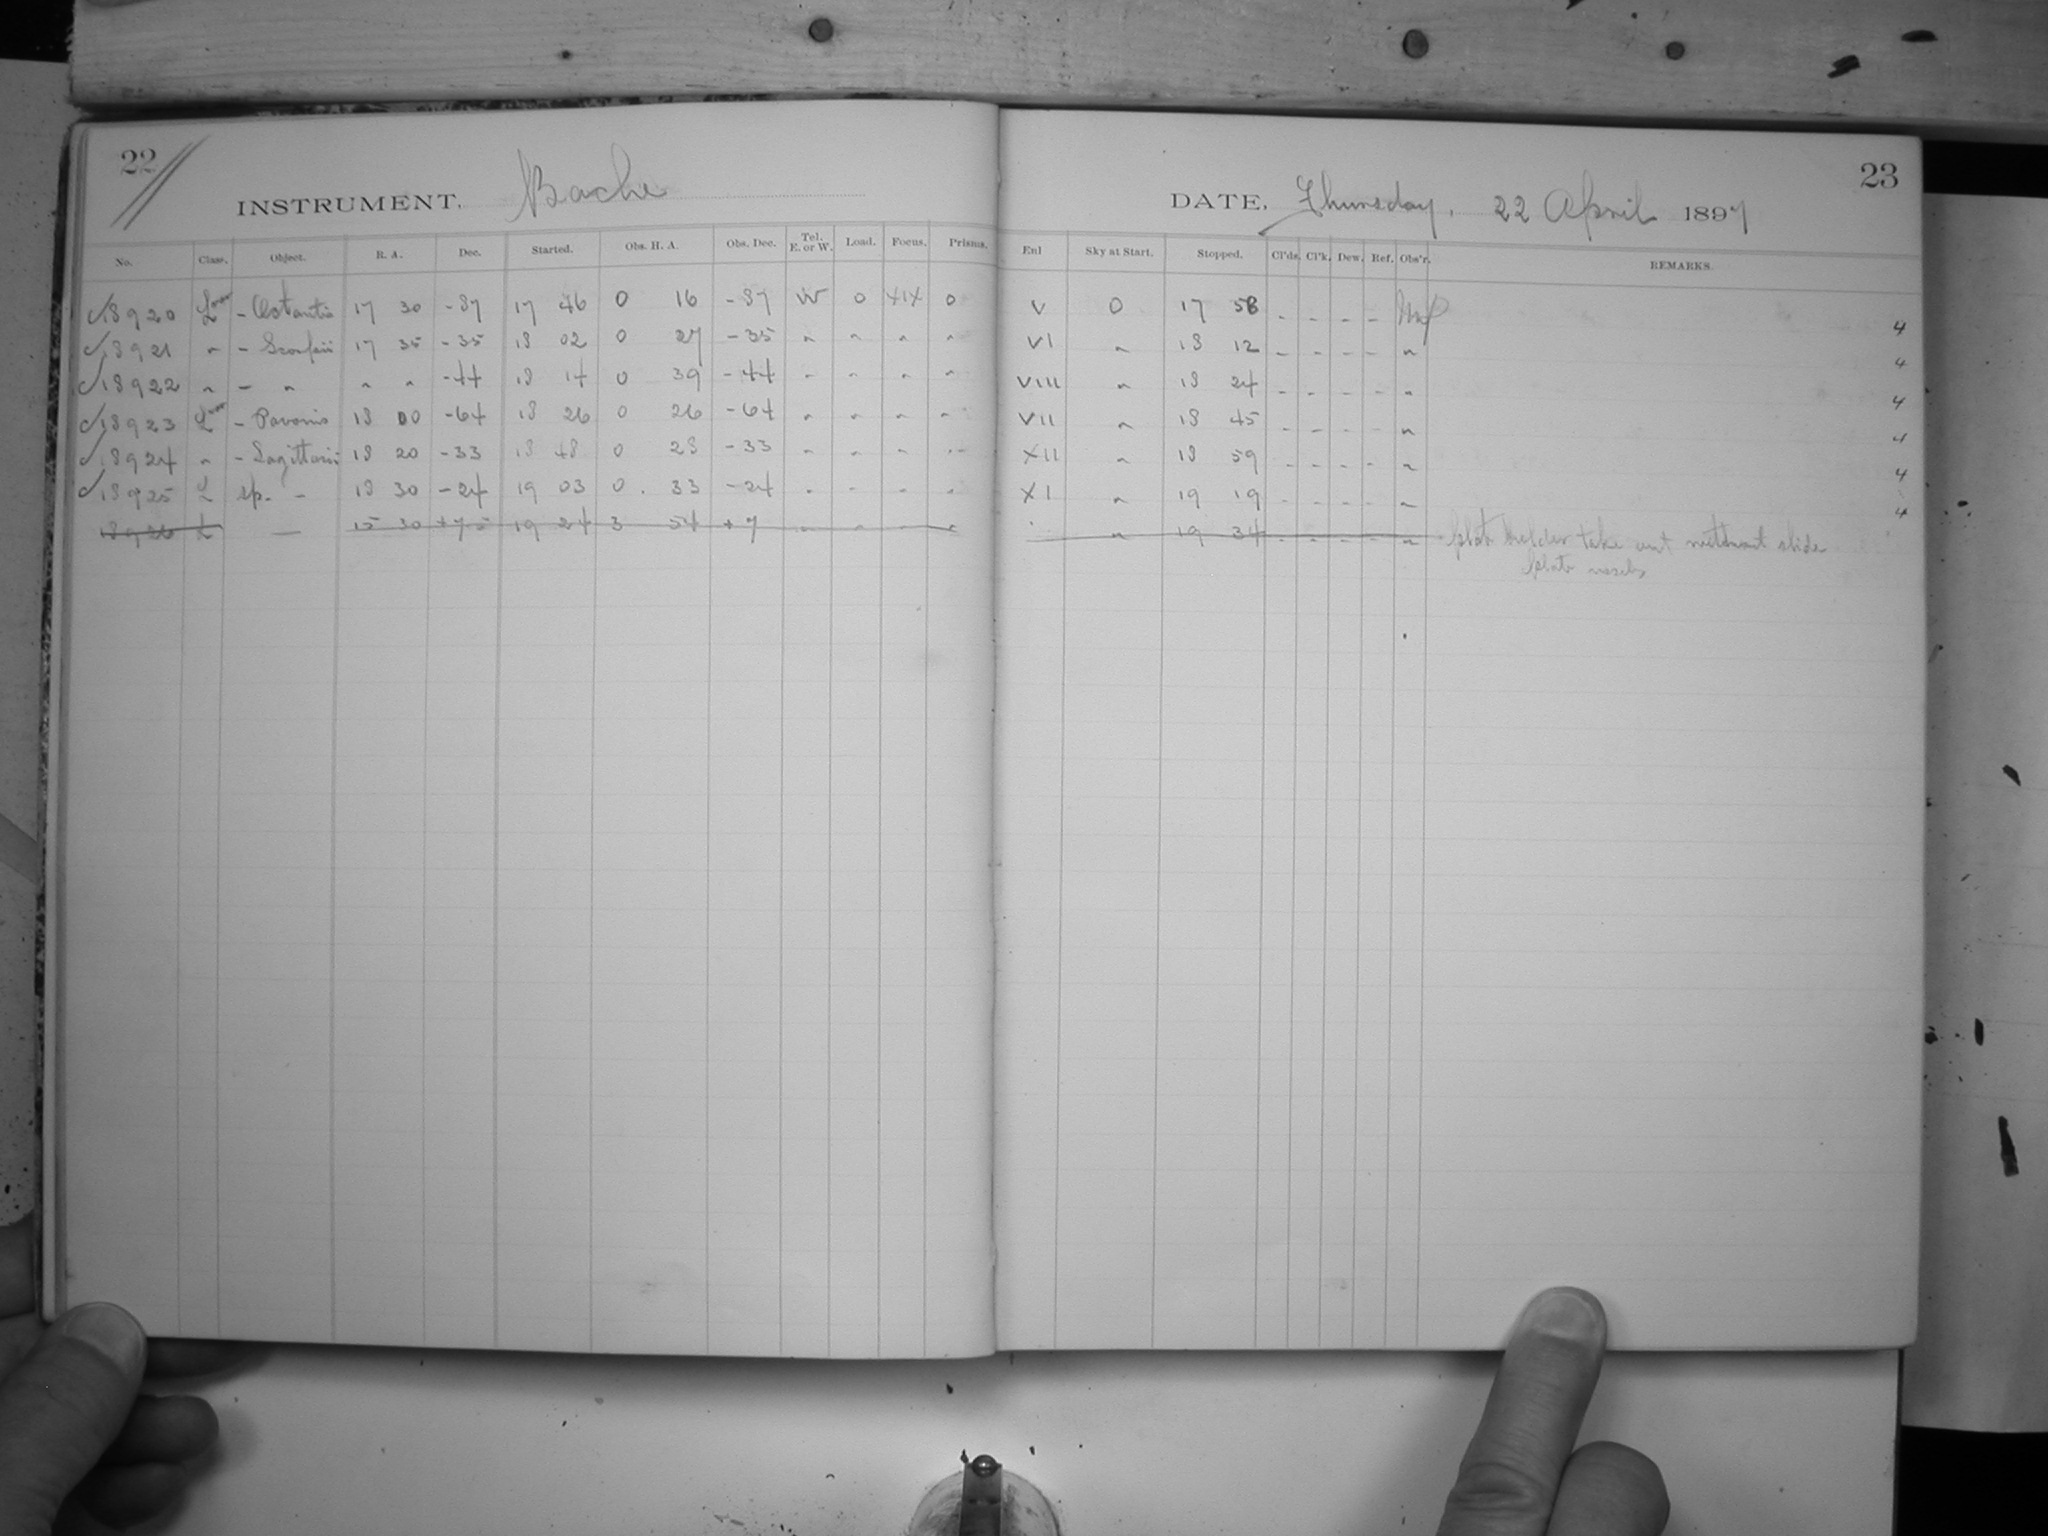 22
INSTRUMENT. Bache
No. Class. Object. R. A. Dec. Started. Obs. H. A. Obs. Dec. Tel. E. or W. Load. Focus. Prisms.
18920 L - Octantis 17 30 -87 17 46 0 16 -87 W 0 XIX 0
18921 " - Scorpii 17 35 -35 18 02 0 27 -35 " " " "
18922 " - " " " -44 18 14 0 39 -44 " " " "
18923 L - Pavonis 18 00 -64 18 26 0 26 -64 " " " "
18924 " - Sagittarii 18 20 -33 18 48 0 28 -33 " " " "
18925 L sp. - 18 30 -24 19 03 0 33 -24 " " " "
18926 L — 15 30 +75 19 24 3 54 +7 " " " "
23
DATE, Thursday, 22 April 1897
Enl Sky at Start. Stopped. Cl'ds. Cl'k. Dew. Ref. Obs'r. REMARKS.
V 0 17 58 - - - - 4
VI " 18 12 - - - - " 4
VIII " 18 24 - - - - " 4
VII " 18 45 - - - - " 4
XII " 18 59 - - - - " 4
XI " 19 19 - - - - " 4
" 19 34 - - - - " plate holder take out without slide
plate